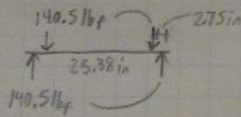 140.5 lbf 2.75in
25.38in
140.5 lbf